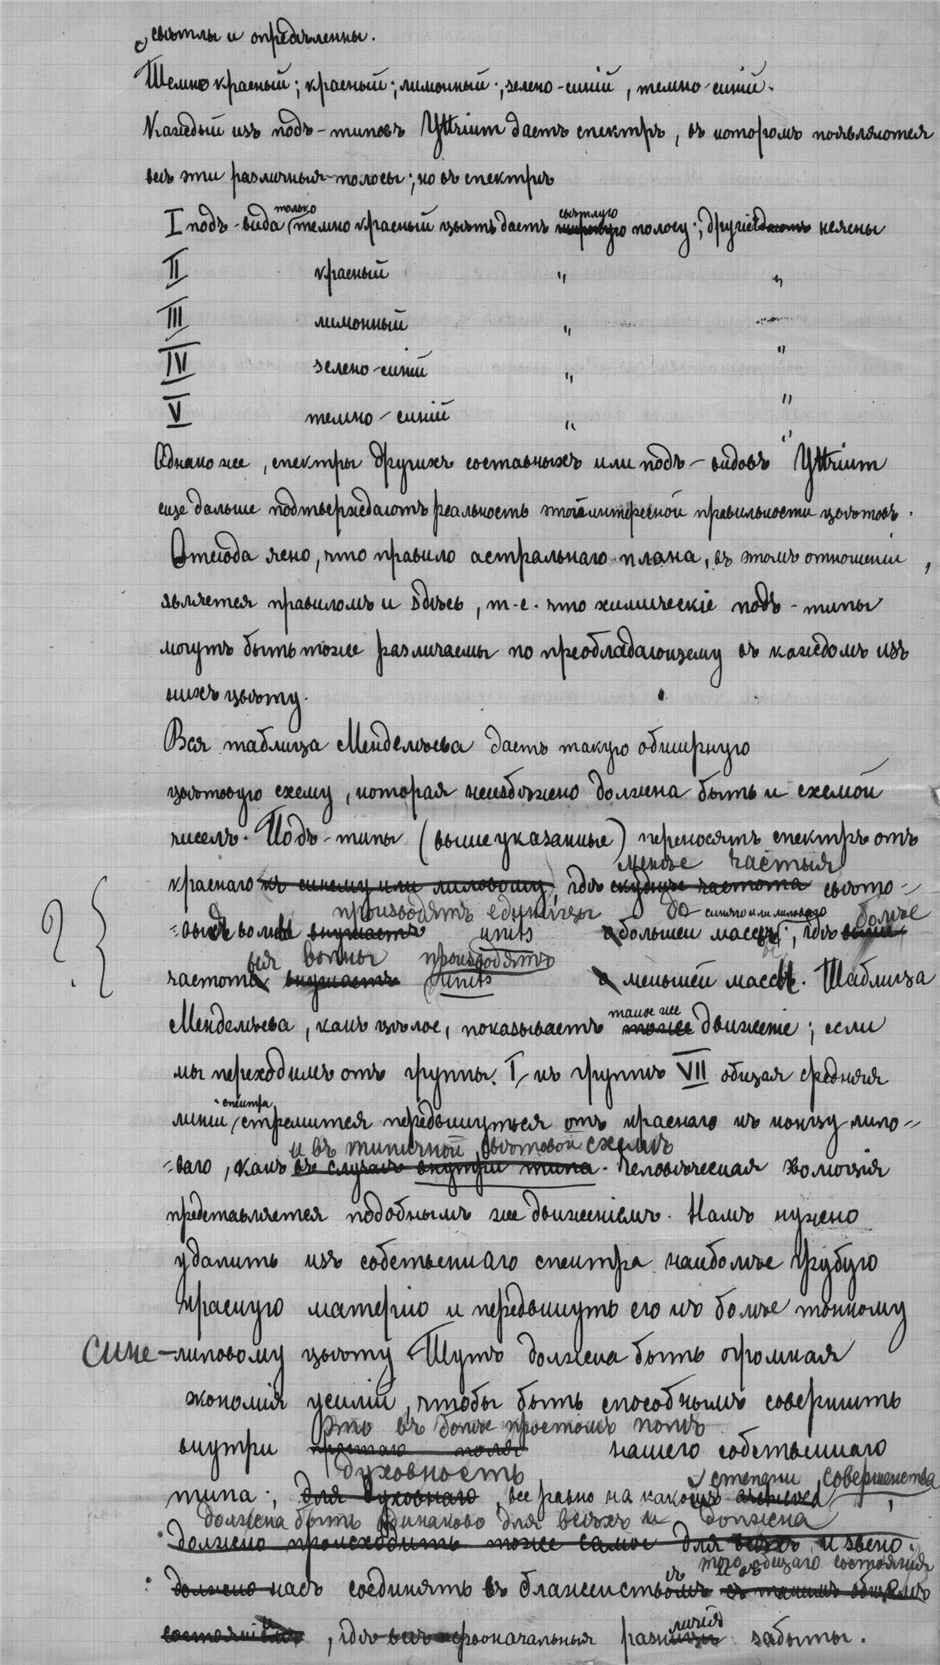 свѣтлы и опредѣленны.
Темно красный; красный; лимонный; зелено-синій, темно-синій.
Каждый изъ подъ-типовъ Yttrium даетъ спектръ, въ которомъ появляются
всѣ эти различныя полосы; но въ спектрѣ
I подъ-вида только темно красный цвѣтъ даетъ свѣтлую полосу; другіе неясны
II красный " "
III лимонный "
IV зелено-синій " "
V темно-синій " "
Однако же, спектры другихъ составныхъ или подъ-видовъ Yttrium
еще дальше подтверждаютъ реальность этой интересной правильности цвѣтовъ.
Отсюда ясно, что правило астральнаго плана, въ этомъ отношеніи,
является правиломъ и здѣсь, т.е. что химическіе подъ-типы
могутъ быть тоже различаемы по преобладающему въ каждомъ изъ
нихъ цвѣту.
Вся таблица Менделѣева даетъ такую обширную
цвѣтовую схему, которая неизбѣжно должна быть и схемой
чиселъ. Подъ-типы (выше указанные) переносятъ спектръ отъ
менѣе частыя
краснаго къ синему или лиловому, гдѣ скудная частота свѣто-
производятъ единицы до синяго или лиловаго болѣе
выя волны внушаетъ units большей массы; гдѣ выше
волны производятъ
частота внушаетъ units меньшей массы. Таблица
Менделѣева, какъ цѣлое, показываетъ такое же тоже движеніе; если
мы переходимъ отъ группы I къ группѣ VII общая средняя
линій спектра стремится передвинуться отъ краснаго къ концу лило-
и въ типичной цвѣтовой схемѣ
ваго, какъ въ случаѣ внутри типа. Человѣческая эволюція
представляется подобнымъ же движеніемъ. Намъ нужно
удалить изъ собственнаго спектра наиболѣе грубую
красную матерію и передвинуть его къ болѣе тонкому
сине-лиловому цвѣту. Тутъ должна быть огромная
экономія усилій, чтобы быть способнымъ совершить
это въ болѣе простомъ полѣ
внутри простаго поля нашего собственнаго
духовность степени совершенства
типа; для духовнаго, все равно на какой
должна быть одинаково для всѣхъ и должна
должно происходить тоже самое для всѣхъ и звено.
того общаго состоянія
должно насъ соединять въ блаженствѣ съ такимъ общимъ
состояніемъ, гдѣ всѣ первоначальныя различія забыты.